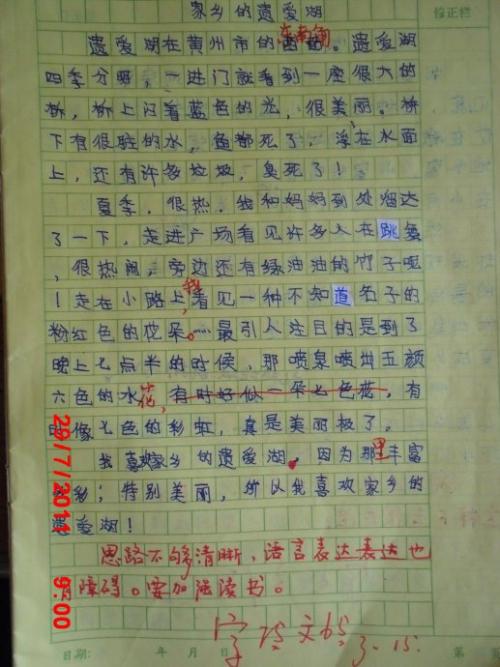 家乡的遗爱湖
修正栏
遗爱湖在黄州市的东南面。遗爱湖
四季分明，一进门就看到一座很大的
桥，桥上闪着蓝色的光，很美丽。桥
下有很脏的水，鱼都死了，浮在水面
上，还有许多垃圾，臭死了！
夏季，很热，我和妈妈到处溜达
了一下，走进广场看见许多人在跳舞
，很热闹，旁边还有绿油油的竹子呢
！走在小路上，我看见一种不知道名子的
粉红色的花朵。最引人注目的是到了
晚上七点半的时候，那喷泉喷出五颜
六色的水花，有时好似一朵七色花，有
时像七色的彩虹，真是美丽极了。
我喜欢家乡的遗爱湖。因为那里丰富
多彩；特别美丽，所以我喜欢家乡的
遗爱湖！
思路不够清晰，语言表达表达也
有障碍。要加强读书。
3.15.
29/7/2011 9:00
日期： 年 月 日
第